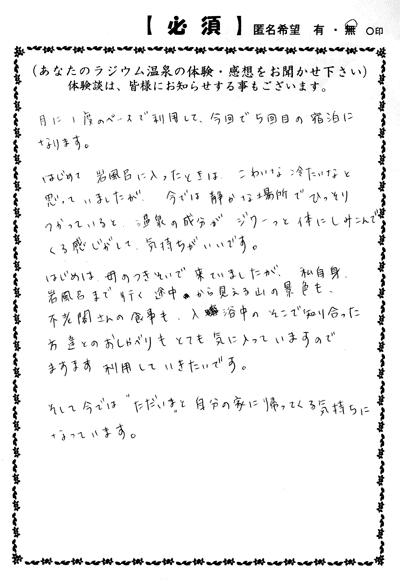 【必須】 匿名希望 有・無 ○印
(あなたのラジウム温泉の体験・感想をお聞かせ下さい)
体験談は、皆様にお知らせする事もございます。
月に1度のペースで利用して、今回で5回目の宿泊に
なります。
はじめて岩風呂に入ったときは、こわいな冷たいなと
思っていましたが、今では静かな場所でひっそり
つかっていると、温泉の成分がジワーっと体にしみこんで
くる感じがして、気持ちがいいです。
はじめは母のつきそいで来ていましたが、私自身、
岩風呂まで行く途中から見える山の景色も、
不老閣さんの食事も、入浴中のそこで知り合った
方達とのおしゃべりもとても気に入っていますので
ますます利用していきたいです。
そして今では"ただいま"と自分の家に帰ってくる気持ちに
なっています。